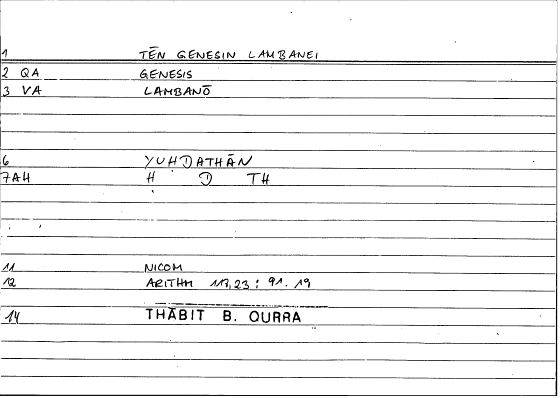 1 TĒN GENESIN LAMBANEI
2 QA GENESIS
3 VA LAMBANŌ
6 YUHDATHĀN
7AH H D TH
11 NICOM
12 ARITHM 113,23 : 91.19
14 THĀBIT B. QURRA